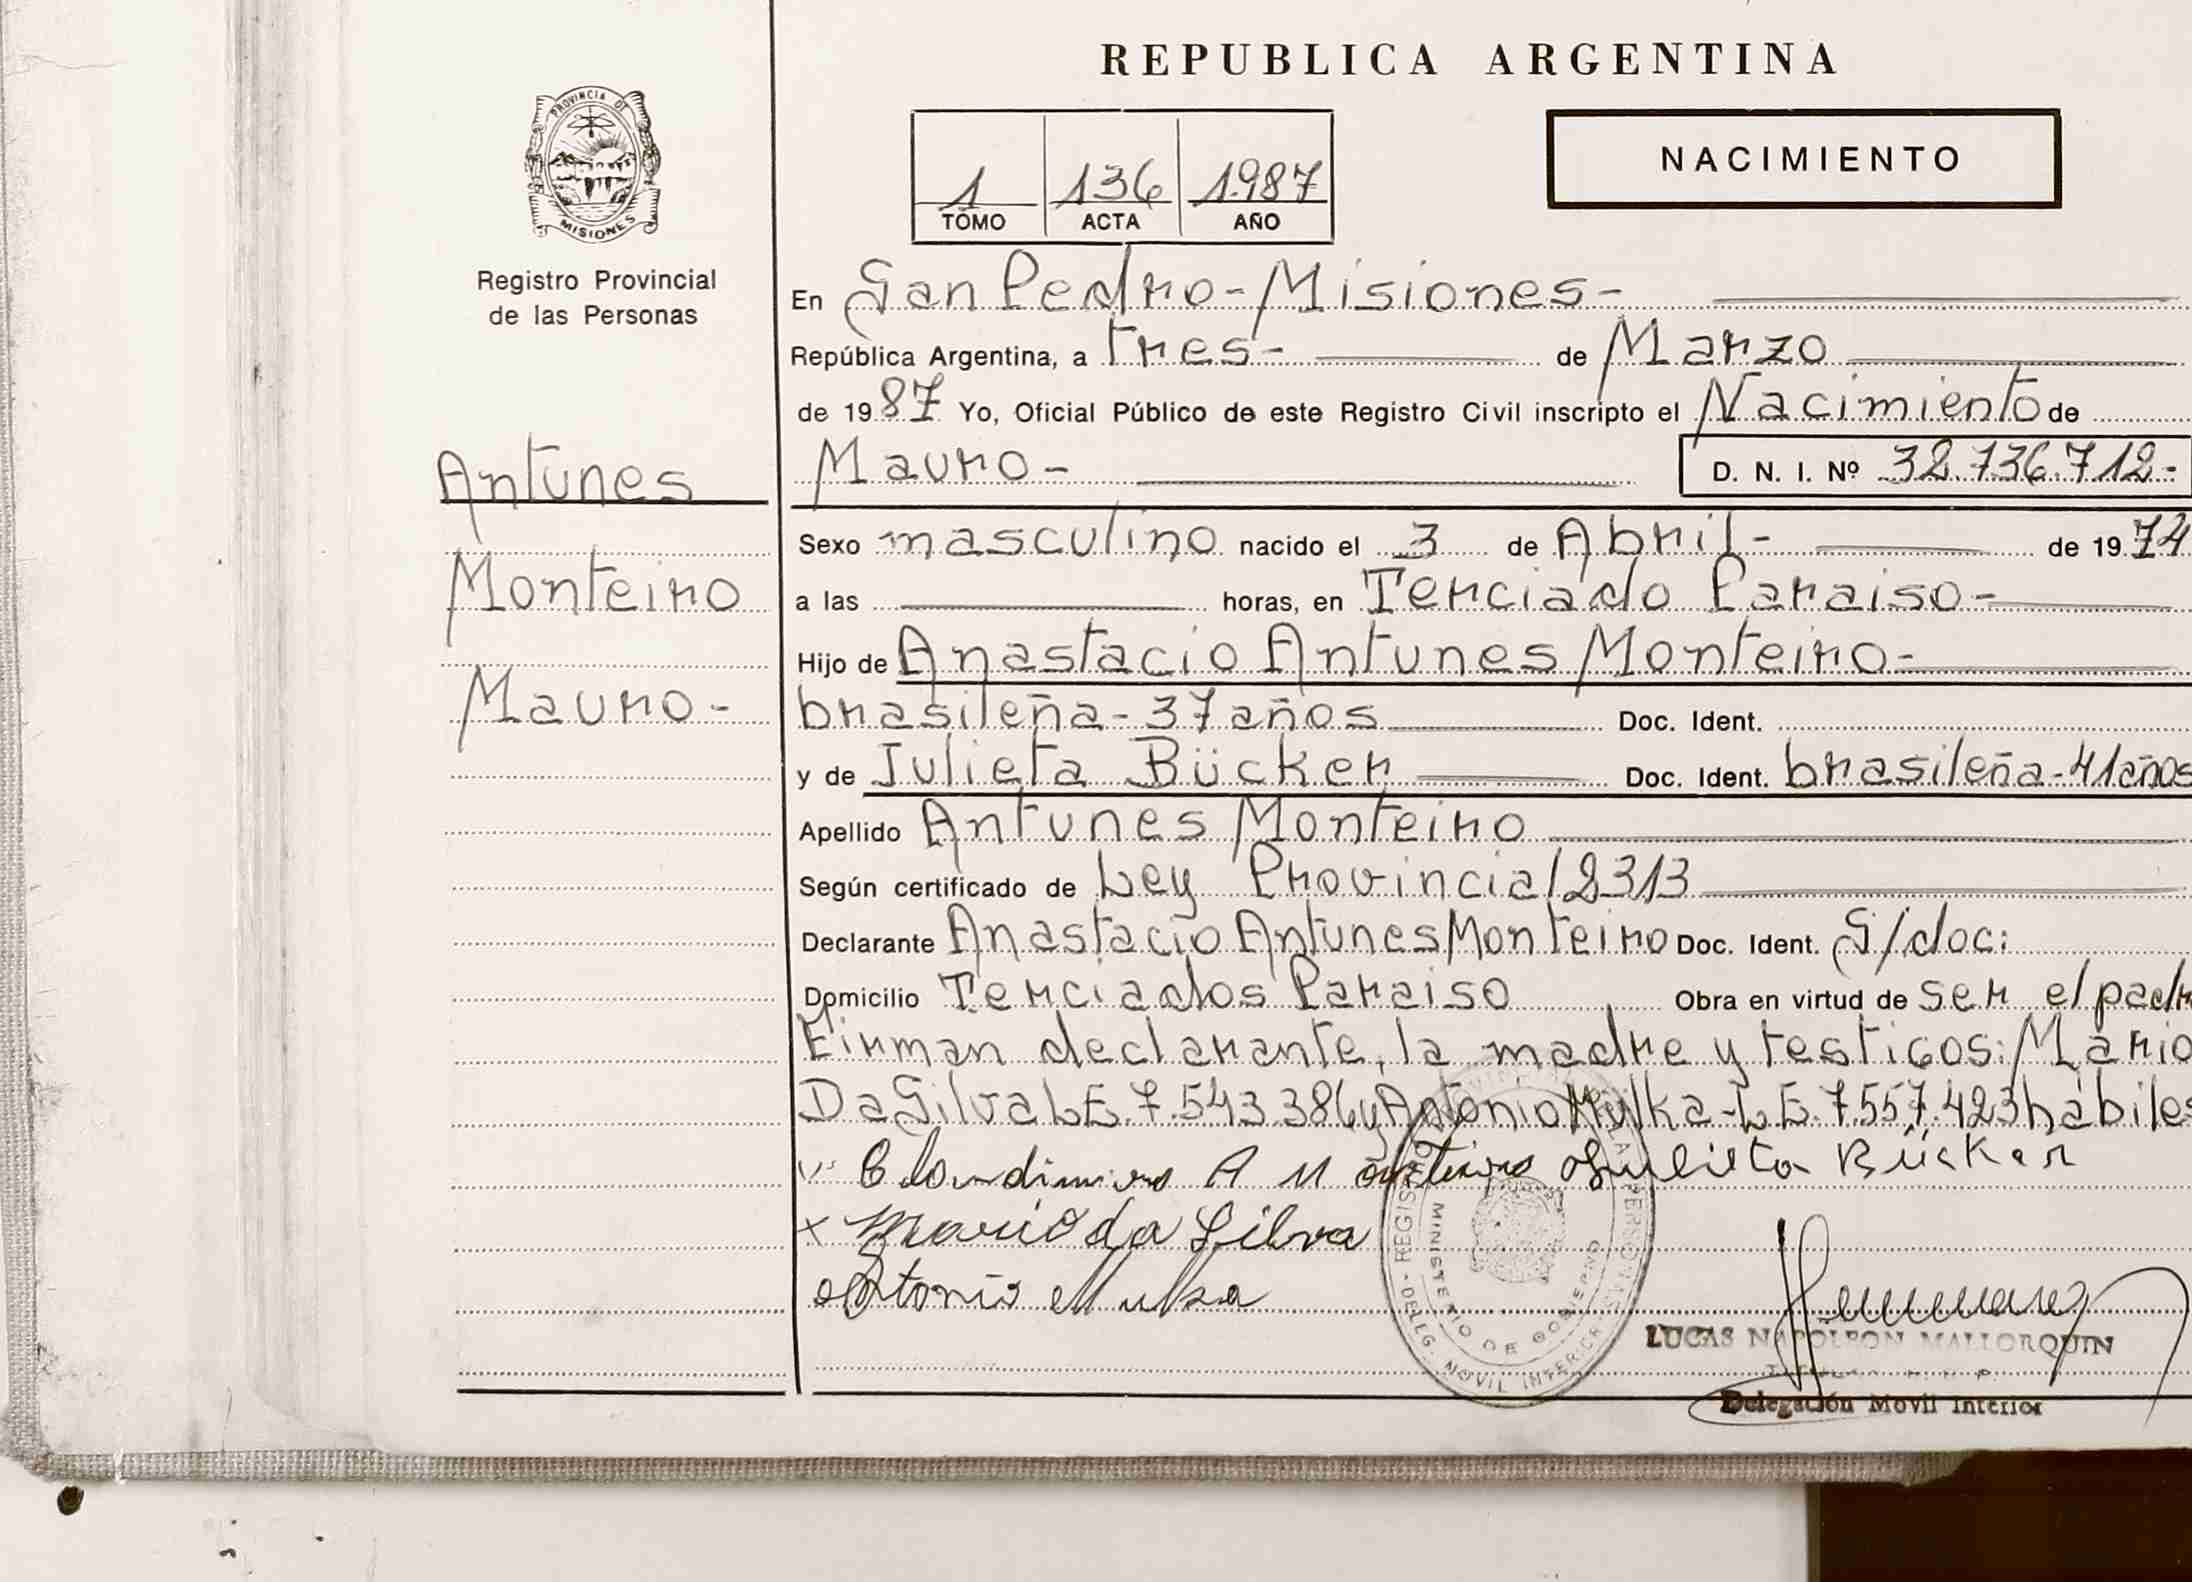 REPUBLICA ARGENTINA
PROVINCIA DE
MISIONES
Registro Provincial
de las Personas
1 136 1.987
TOMO ACTA AÑO
NACIMIENTO
En San Pedro - Misiones -
República Argentina, a tres - de Marzo
de 1987 Yo, Oficial Público de este Registro Civil inscripto el Nacimiento de
Mauro - D. N. I. Nº 32.736.712 -
Antunes
Monteiro
Mauro -
Sexo masculino nacido el 3 de Abril - de 1974
a las horas, en Terciado Paraiso -
Hijo de Anastacio Antunes Monteiro -
brasileña - 37 años Doc. Ident.
y de Julieta Bücker Doc. Ident. brasileña - 41 años
Apellido Antunes Monteiro
Según certificado de Ley Provincial 2313
Declarante Anastacio Antunes Monteiro Doc. Ident. S/doc:
Domicilio Terciados Paraiso Obra en virtud de ser el padr
Firman declarante, la madre y testigos: Mario
Da Silva L E. 7.543.386 y Antonio Mulka - L E. 7.557.423 hábiles
A Monteiro Julieta Bücker
x Mario da Silva
Antonio Mulka
REGISTRO PROVINCIAL DE LAS PERSONAS
MINISTERIO DE GOBIERNO
DELEG. MOVIL INTERIOR
LUCAS NAPOLEON MALLORQUIN
Delegación Movil Interior